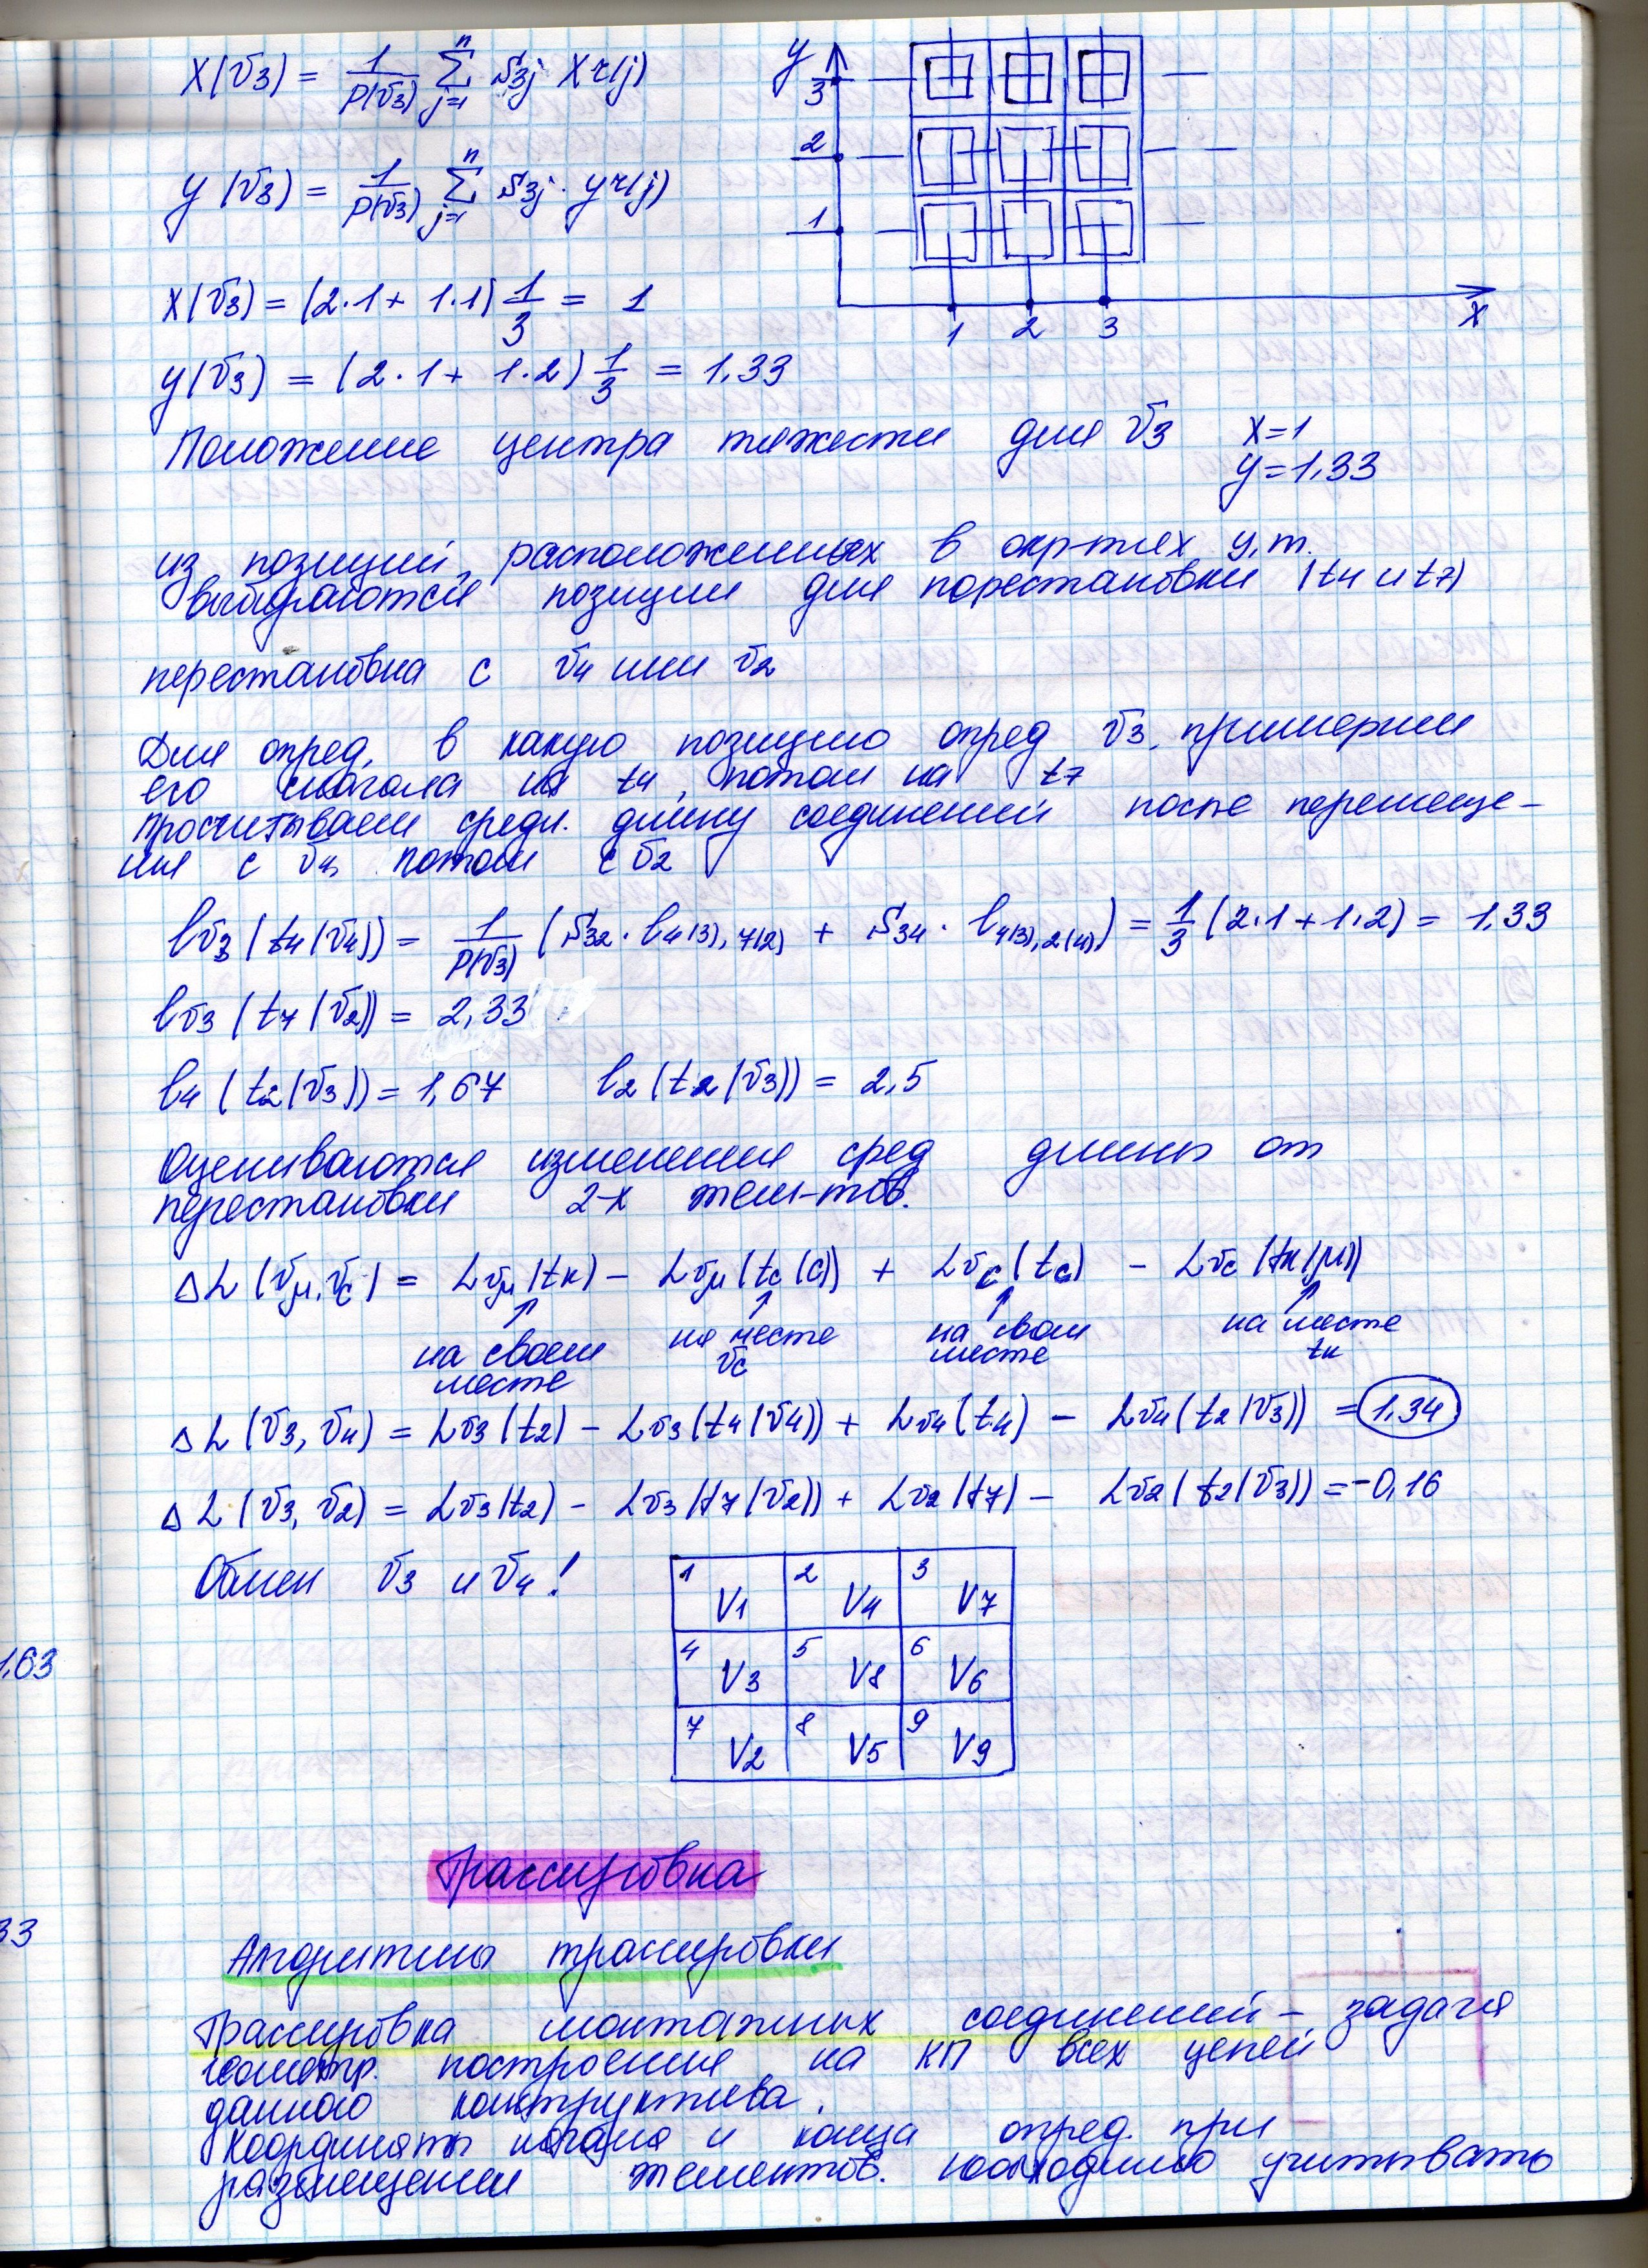 X(v3) = 1/P(v3) Σ j=1 n S3j Xr(j)
y(v3) = 1/P(v3) Σ j=1 n S3j · yr(j)
X(v3) = (2·1 + 1·1) 1/3 = 1
y(v3) = (2·1 + 1·2) 1/3 = 1,33
y
3
2
1
1 2 3
X
Положение центра тяжести для v3 X=1
y=1,33
из позиций, расположенных в окр-тях ц.т.
выбираются позиции для перестановки (t4 и t7)
перестановка с v4 или v2
Для опред. в какую позицию опред v3, примерим
его сначала на t4, потом на t7
просчитываем средн. длину соединений после перемеще-
ния с v4, потом с v2
lv3 (t4(v4)) = 1/P(v3) (S32 · l4(3),7(2) + S34 · l4(3),2(4)) = 1/3 (2·1 + 1·2) = 1,33
lv3 (t7(v2)) = 2,33
l4 (t2(v3)) = 1,67 l2 (t2(v3)) = 2,5
Оцениваются изменения сред длины от
перестановки 2-х элем-тов.
ΔL (vμ, vc) = Lvμ(tk) - Lvμ(tc(c)) + Lvc(tc) - Lvc(tk(μ))
на своем месте
на месте vc
на своем месте
на месте tk
ΔL (v3, v4) = Lv3(t2) - Lv3(t4(v4)) + Lv4(t4) - Lv4(t2(v3)) = 1,34
ΔL (v3, v2) = Lv3(t2) - Lv3(t7(v2)) + Lv2(t7) - Lv2(t2(v3)) = -0,16
Обмен v3 и v4!
1 V1 2 V4 3 V7
4 V3 5 V8 6 V6
7 V2 8 V5 9 V9
1,63
33
Трассировка
Алгоритмы трассировки
Трассировка монтажных соединений - задача
геометр. построения на КП всех цепей
данного конструктива.
Координаты начала и конца опред. при
размещении элементов. Необходимо учитывать